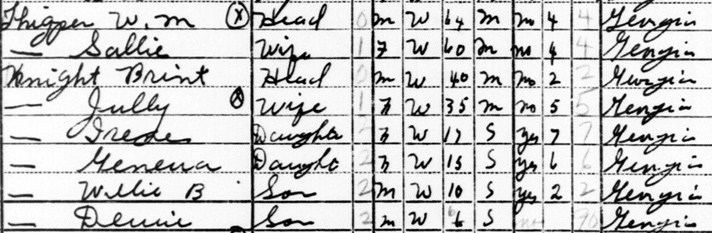 Thigpen W. M (X) Head 0 M W 64 M no 4 4 Georgia
— Sallie Wife 1 F W 60 M no 4 4 Georgia
Knight Brint Head 0 M W 40 M no 2 2 Georgia
— Jully (X) Wife 1 F W 35 M no 5 5 Georgia
— Daughter 2 F W 17 S yes 7 7 Georgia
— Geneva Daughter 2 F W 15 S yes 6 6 Georgia
— Willie B Son 2 M W 10 S yes 2 2 Georgia
— Son 2 M W 6 S no Georgia